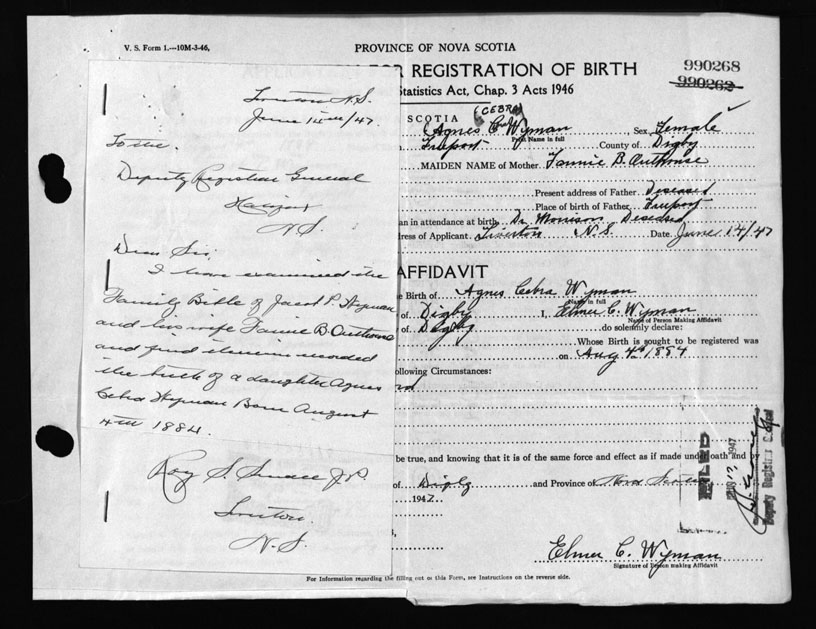 V. S. Form 1.—10M-3-46,
PROVINCE OF NOVA SCOTIA
FOR REGISTRATION OF BIRTH
990268
990262
Statistics Act, Chap. 3 Acts 1946
(CEBRA)
SCOTIA
Agnes C Wyman
Print Name in full
Sex Female
Freeport
County of Digby
MAIDEN NAME of Mother Fannie B. Outhouse
Present address of Father Deseased
Place of birth of Father Freeport
an in attendance at birth Dr Morrison Deseased
ress of Applicant Tiverton N.S. Date June 14/47
AFFIDAVIT
e Birth of Agnes Cebra Wyman
Name in full
of Digby I, Elmer C. Wyman
Name of Person Making Affidavit
y of Digby do solemnly declare:
Whose Birth is sought to be registered was
on Aug 4th 1884
ollowing Circumstances:
be true, and knowing that it is of the same force and effect as if made under oath and by
of Digby and Province of Nova Scotia
1947
FILED
1947
Deputy Registrar General
Elmer C. Wyman
Signature of Person making Affidavit
For Information regarding the filling out of this Form, see Instructions on the reverse side.
Tiverton N.S.
June 14th/47
To the
Deputy Registrar General
Halifax
N.S.
Dear Sir.
I have examined the
Family Bible of Jacob P. Wyman
and his wife Fannie B. Outhouse
and find therein recorded
the birth of a daughter Agnes
Cebra Wyman Born August
4th 1884.
Roy S. J.P.
Tiverton.
N.S.